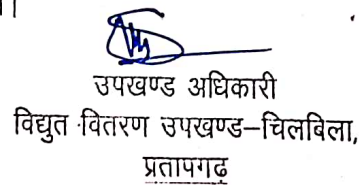 उपखण्ड अधिकारी
विद्युत वितरण उपखण्ड–चिलबिला,
प्रतापगढ़